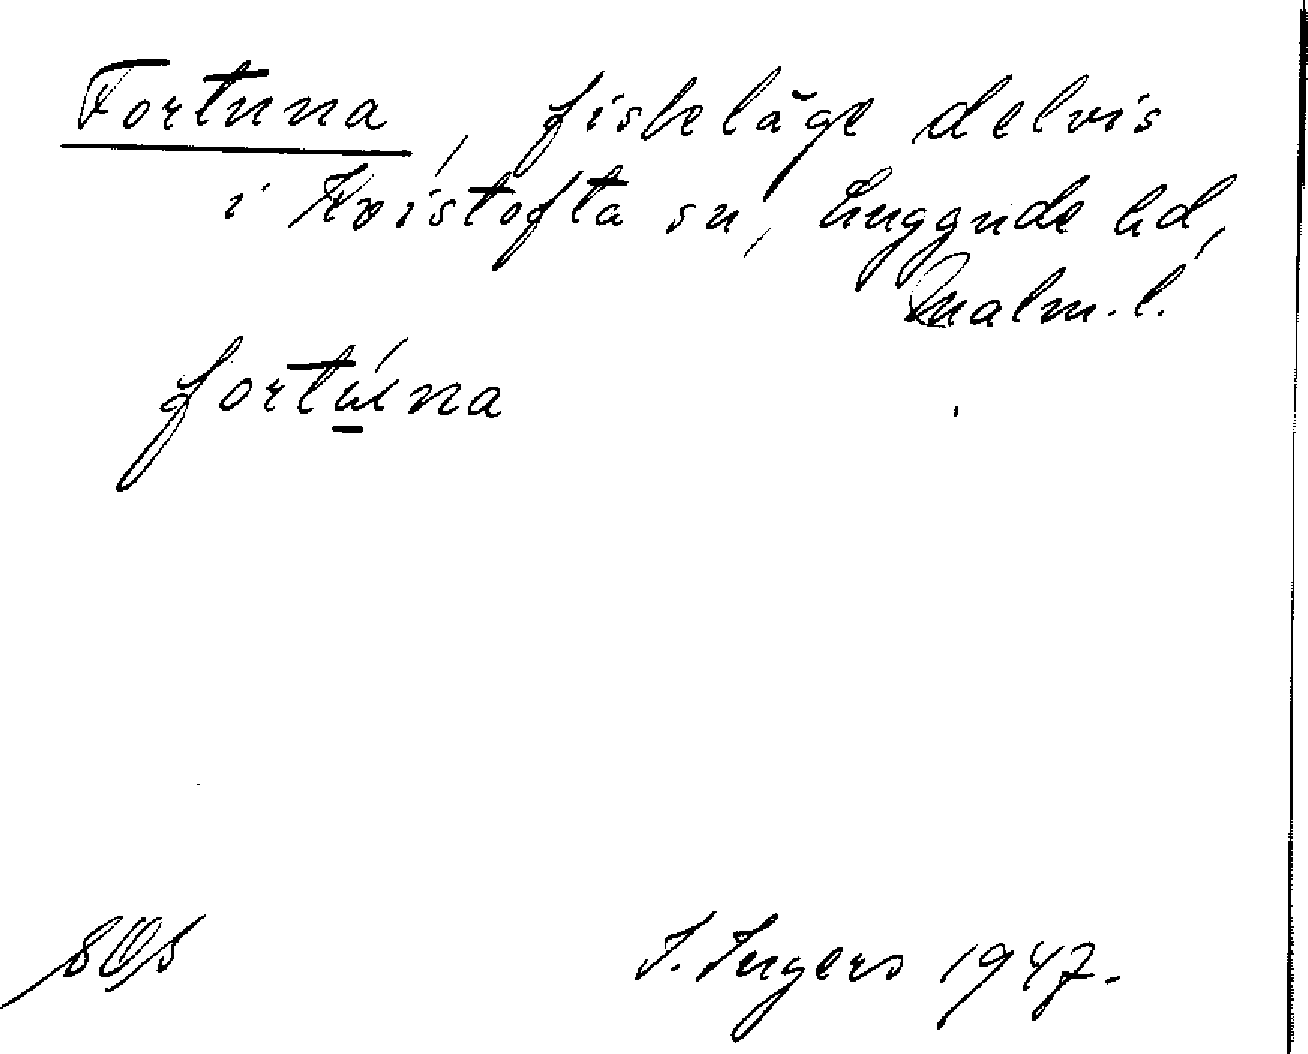 Fortuna, fiskeläge delvis
i Kvistofta sn, Luggude hd,
Malm. l.
fortú̱na
I. Ingers 1947.